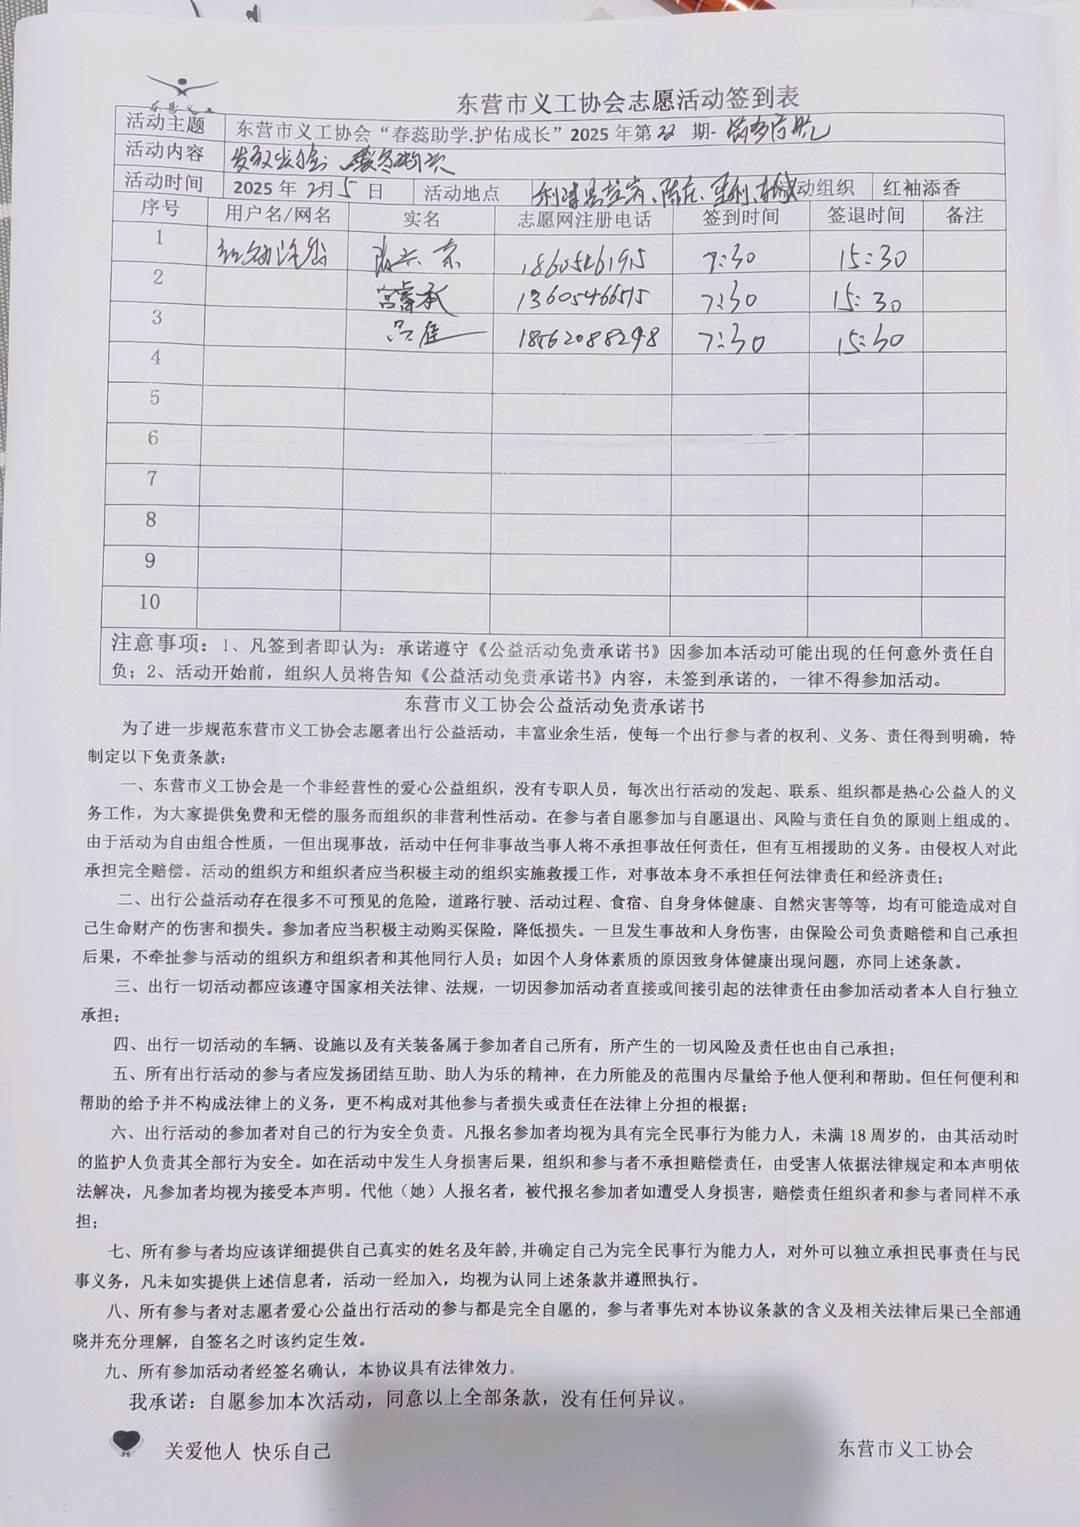 东营义工
东营市义工协会志愿活动签到表
活动主题 东营市义工协会“春蕊助学.护佑成长”2025年第 期-
活动内容
活动时间 2025年2月5日 活动地点 活动组织 红袖添香
序号 用户名/网名 实名 志愿网注册电话 签到时间 签退时间 备注
1 7:30 15:30
2 宫睿承 13605466515 7:30 15:30
3 吕佳 18562088298 7:30 15:30
4
5
6
7
8
9
10
注意事项：1、凡签到者即认为：承诺遵守《公益活动免责承诺书》因参加本活动可能出现的任何意外责任自
负；2、活动开始前，组织人员将告知《公益活动免责承诺书》内容，未签到承诺的，一律不得参加活动。
东营市义工协会公益活动免责承诺书
为了进一步规范东营市义工协会志愿者出行公益活动，丰富业余生活，使每一个出行参与者的权利、义务、责任得到明确，特
制定以下免责条款：
一、东营市义工协会是一个非经营性的爱心公益组织，没有专职人员，每次出行活动的发起、联系、组织都是热心公益人的义
务工作，为大家提供免费和无偿的服务而组织的非营利性活动。在参与者自愿参加与自愿退出、风险与责任自负的原则上组成的。
由于活动为自由组合性质，一但出现事故，活动中任何非事故当事人将不承担事故任何责任，但有互相援助的义务。由侵权人对此
承担完全赔偿。活动的组织方和组织者应当积极主动的组织实施救援工作，对事故本身不承担任何法律责任和经济责任；
二、出行公益活动存在很多不可预见的危险，道路行驶、活动过程、食宿、自身身体健康、自然灾害等等，均有可能造成对自
己生命财产的伤害和损失。参加者应当积极主动购买保险，降低损失。一旦发生事故和人身伤害，由保险公司负责赔偿和自己承担
后果，不牵扯参与活动的组织方和组织者和其他同行人员；如因个人身体素质的原因致身体健康出现问题，亦同上述条款。
三、出行一切活动都应该遵守国家相关法律、法规，一切因参加活动者直接或间接引起的法律责任由参加活动者本人自行独立
承担；
四、出行一切活动的车辆、设施以及有关装备属于参加者自己所有，所产生的一切风险及责任也由自己承担；
五、所有出行活动的参与者应发扬团结互助、助人为乐的精神，在力所能及的范围内尽量给予他人便利和帮助。但任何便利和
帮助的给予并不构成法律上的义务，更不构成对其他参与者损失或责任在法律上分担的根据；
六、出行活动的参加者对自己的行为安全负责。凡报名参加者均视为具有完全民事行为能力人，未满 18 周岁的，由其活动时
的监护人负责其全部行为安全。如在活动中发生人身损害后果，组织和参与者不承担赔偿责任，由受害人依据法律规定和本声明依
法解决，凡参加者均视为接受本声明。代他（她）人报名者，被代报名参加者如遭受人身损害，赔偿责任组织者和参与者同样不承
担；
七、所有参与者均应该详细提供自己真实的姓名及年龄,并确定自己为完全民事行为能力人，对外可以独立承担民事责任与民
事义务，凡未如实提供上述信息者，活动一经加入，均视为认同上述条款并遵照执行。
八、所有参与者对志愿者爱心公益出行活动的参与都是完全自愿的，参与者事先对本协议条款的含义及相关法律后果已全部通
晓并充分理解，自签名之时该约定生效。
九、所有参加活动者经签名确认，本协议具有法律效力。
我承诺：自愿参加本次活动，同意以上全部条款，没有任何异议。
关爱他人 快乐自己 东营市义工协会